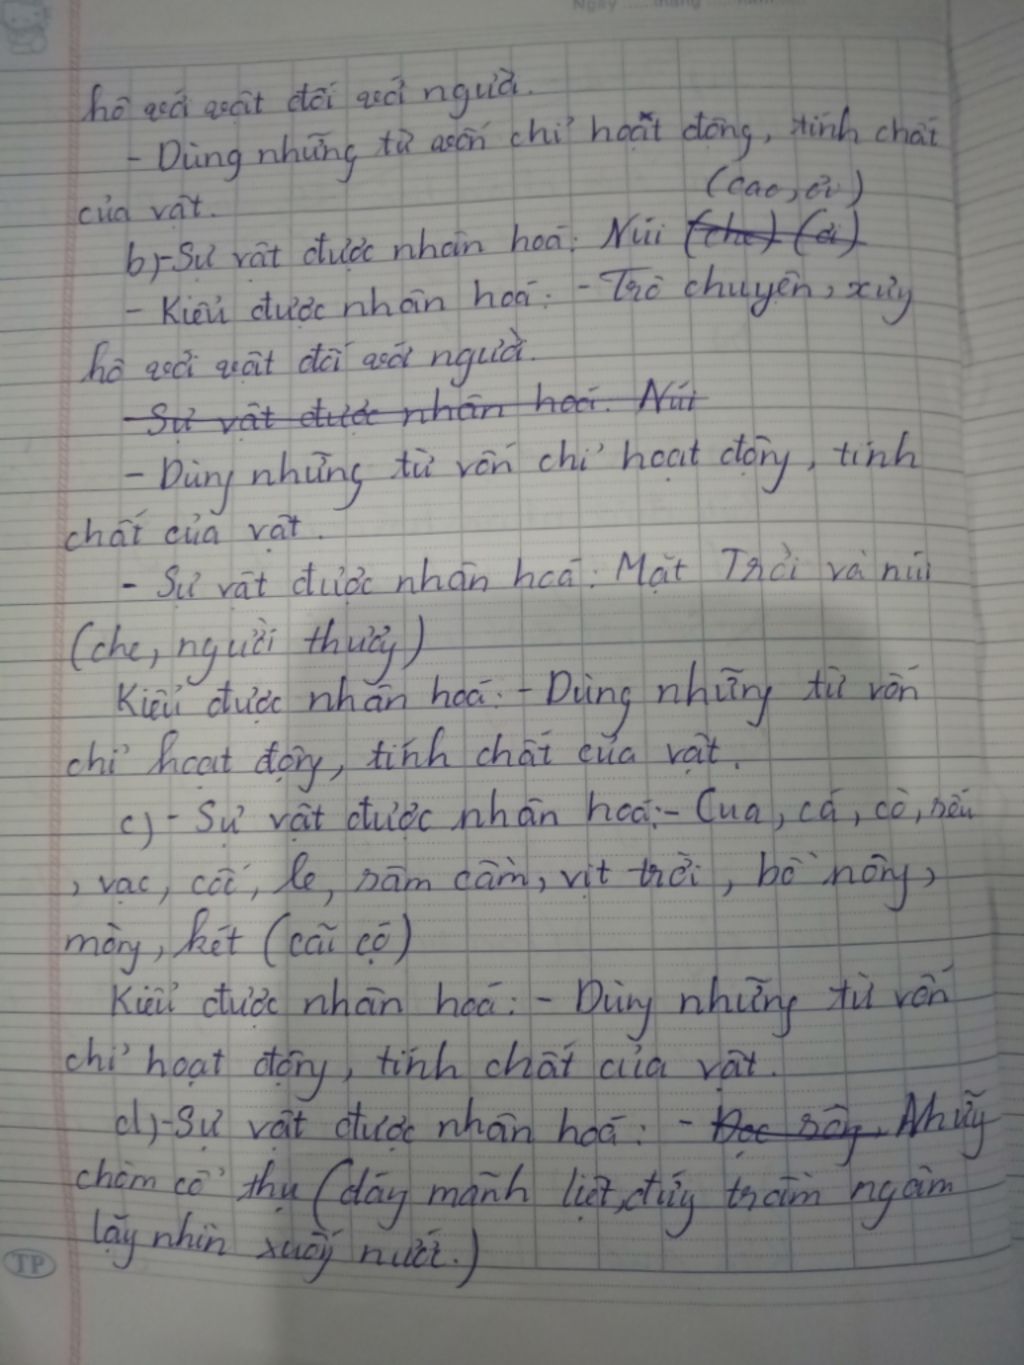 Ngày ..... tháng .....
hô với vật đối với người.
- Dùng những từ vốn chỉ hoạt động, tính chất
(cao, ơi)
của vật.
b)-Sự vật được nhân hoá: Núi (che) (ơi)
- Kiểu được nhân hoá: - Trò chuyện, xưng
hô với vật đối với người.
- Sự vật được nhân hoá: Núi
- Dùng những từ vốn chỉ hoạt động, tính
chất của vật.
- Sự vật được nhân hoá: Mặt Trời và núi
(che, người thương)
Kiểu được nhân hoá: - Dùng những từ vốn
chỉ hoạt động, tính chất của vật.
c) - Sự vật được nhân hoá: - Cua, cá, cò, sếu
, vạc, cốc, le, sâm cầm, vịt trời, bồ nông,
mòng, két (cãi cọ)
Kiểu được nhân hoá: - Dùng những từ vốn
chỉ hoạt động, tính chất của vật.
d)-Sự vật được nhân hoá: - Dọc sông, Những
chòm cổ thụ (dáng mãnh liệt, đứng trầm ngâm
lặng nhìn xuống nước.)
TP